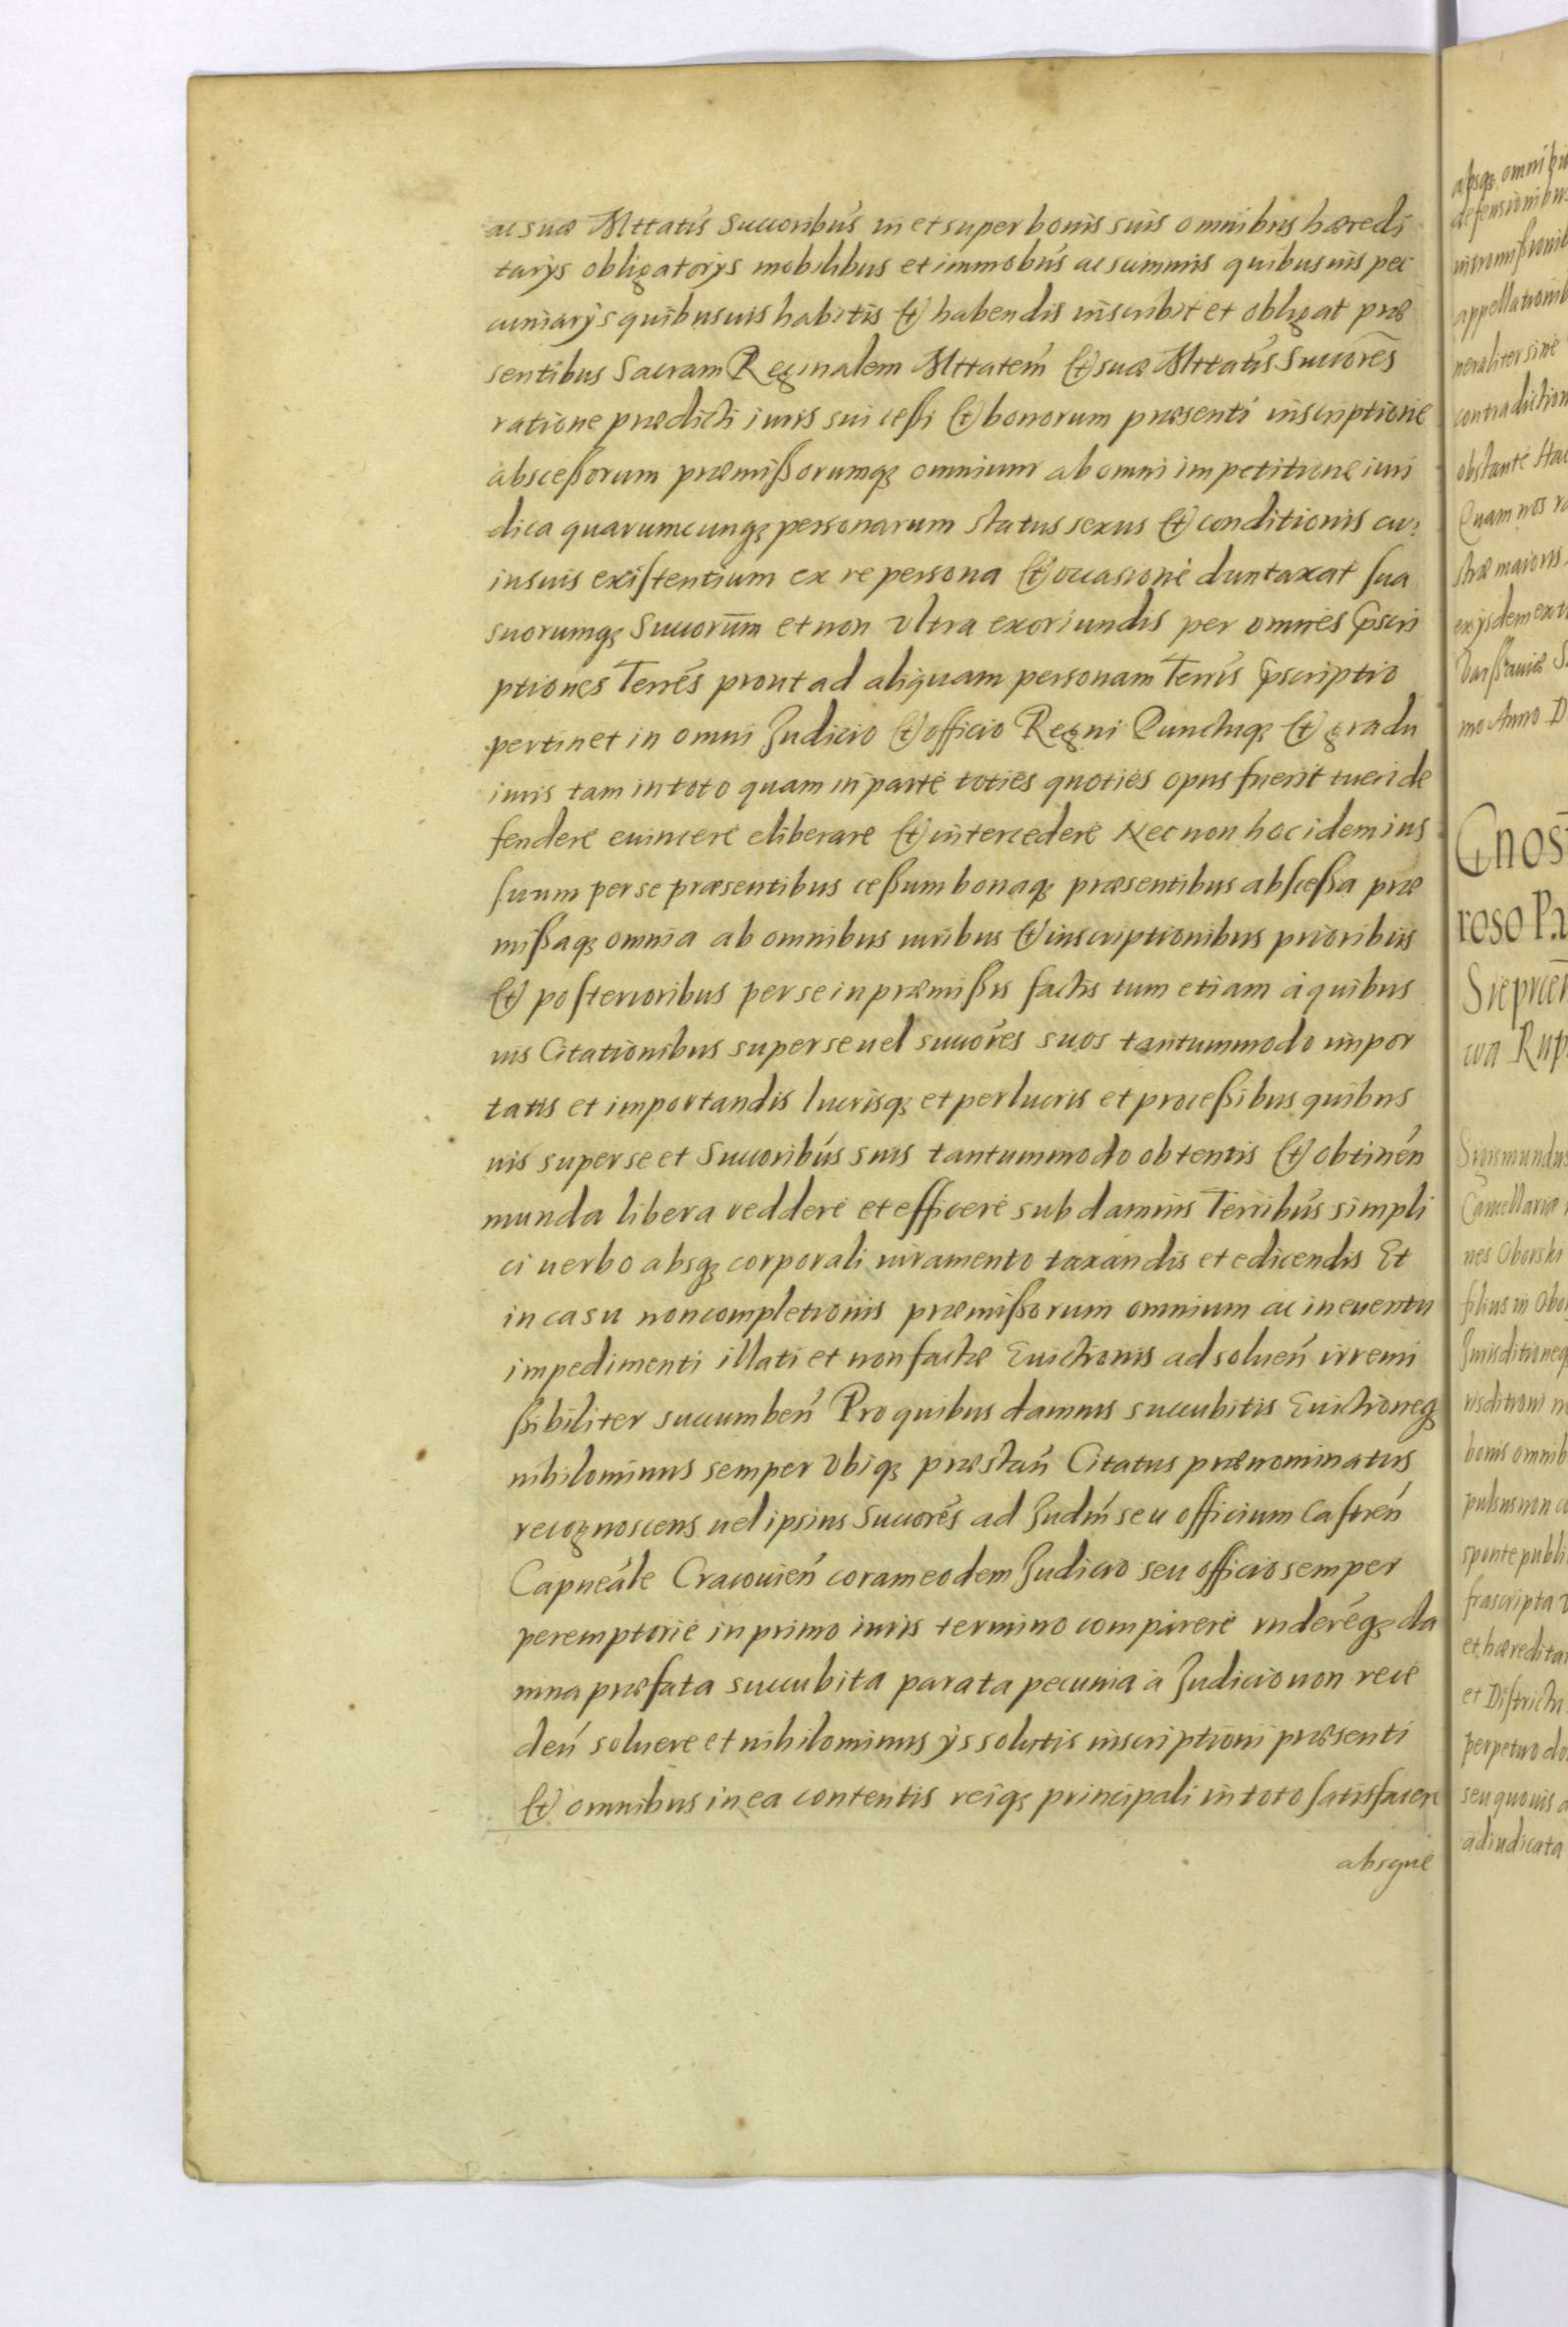 ac suæ Mttatis Succoribus in et super bonis suis omnibus hæredi
tarys obligatorys mobilibus et immobus ac summis quibusuis pec
cuniarys quibusuis habitis et habendis inscribit et obligat præ
sentibus Sacram Reginalem Mttatem et suæ Mttatis Succores
ratione prædicti iuris sui cessi et bonorum præsenti inscriptione
abscessorum præmissorumq; omnium ab omni impetitione iuri
dica quarumcunq; personarum status sexus et conditionis cu:
iusuis existentium ex re persona et occasione duntaxat sua
suorumq; Succorum et non Vltra exoriundis per omnes pscri
ptiones Terres prout ad aliquam personam Terris pscriptio
pertinet in omni Judicio et officio Regni Punctuq; et gradu
iuris tam in toto quam in parte toties quoties opus fuerit tueri de
fendere euincere eliberare et intercedere Nec non hoc idem ius
suum per se præsentibus cessum bonaq; præsentibus abscessa præ
missaq; omnia ab omnibus iuribus et inscriptionibus prioribus
et posterioribus per se in præmissis factis tum etiam à quibus
uis Citationibus super se uel succores suos tantummodo impor
tatis et importandis lucrisq; et perlucris et processibus quibus
uis super se et Succoribus suis tantummodo obtentis et obtinen
munda libera reddere et efficere sub damnis Terribus simpli
ci uerbo absq; corporali iuramento taxandis et edicendis Et
in casu noncompletionis præmissorum omnium ac in euentu
impedimenti illati et non factæ Euictionis ad soluen irremi
ssibiliter succumben Pro quibus damnis succubitis Euictioneq;
nihilominus semper Vbiq; præstan Citatus prænominatus
recognoscens uel ipsius Succores ad Judm seu officium Castren
Capneale Cracouien coram eodem Judicio seu officio semper
peremptorie in primo iuris termino comparere rndereq; da
mna præfata succubita parata pecunia à Judicio non rece
den soluere et nihilominus ys solutis inscriptioni præsenti
et omnibus in ea contentis reiq; principali in toto satisfacere
absque
absq; omnibu
defensionibus
intromissionib
appellationib
neraliter sine
contradiction
obstante
Quam nos
stræ maioris
exysdem
Varssauiæ
mo Anno D
Gnos
roso Pa
Sieprcen
wa Rup
Sigismundus
Cancellariæ
nes Oborski
filius in Obor
Jurisditioneq
risditioni
bonis omnib
pulsus non co
sponte publi
frascripta
et hæreditar
et Districtu
perpetuo do
seu quouis a
adiudicata